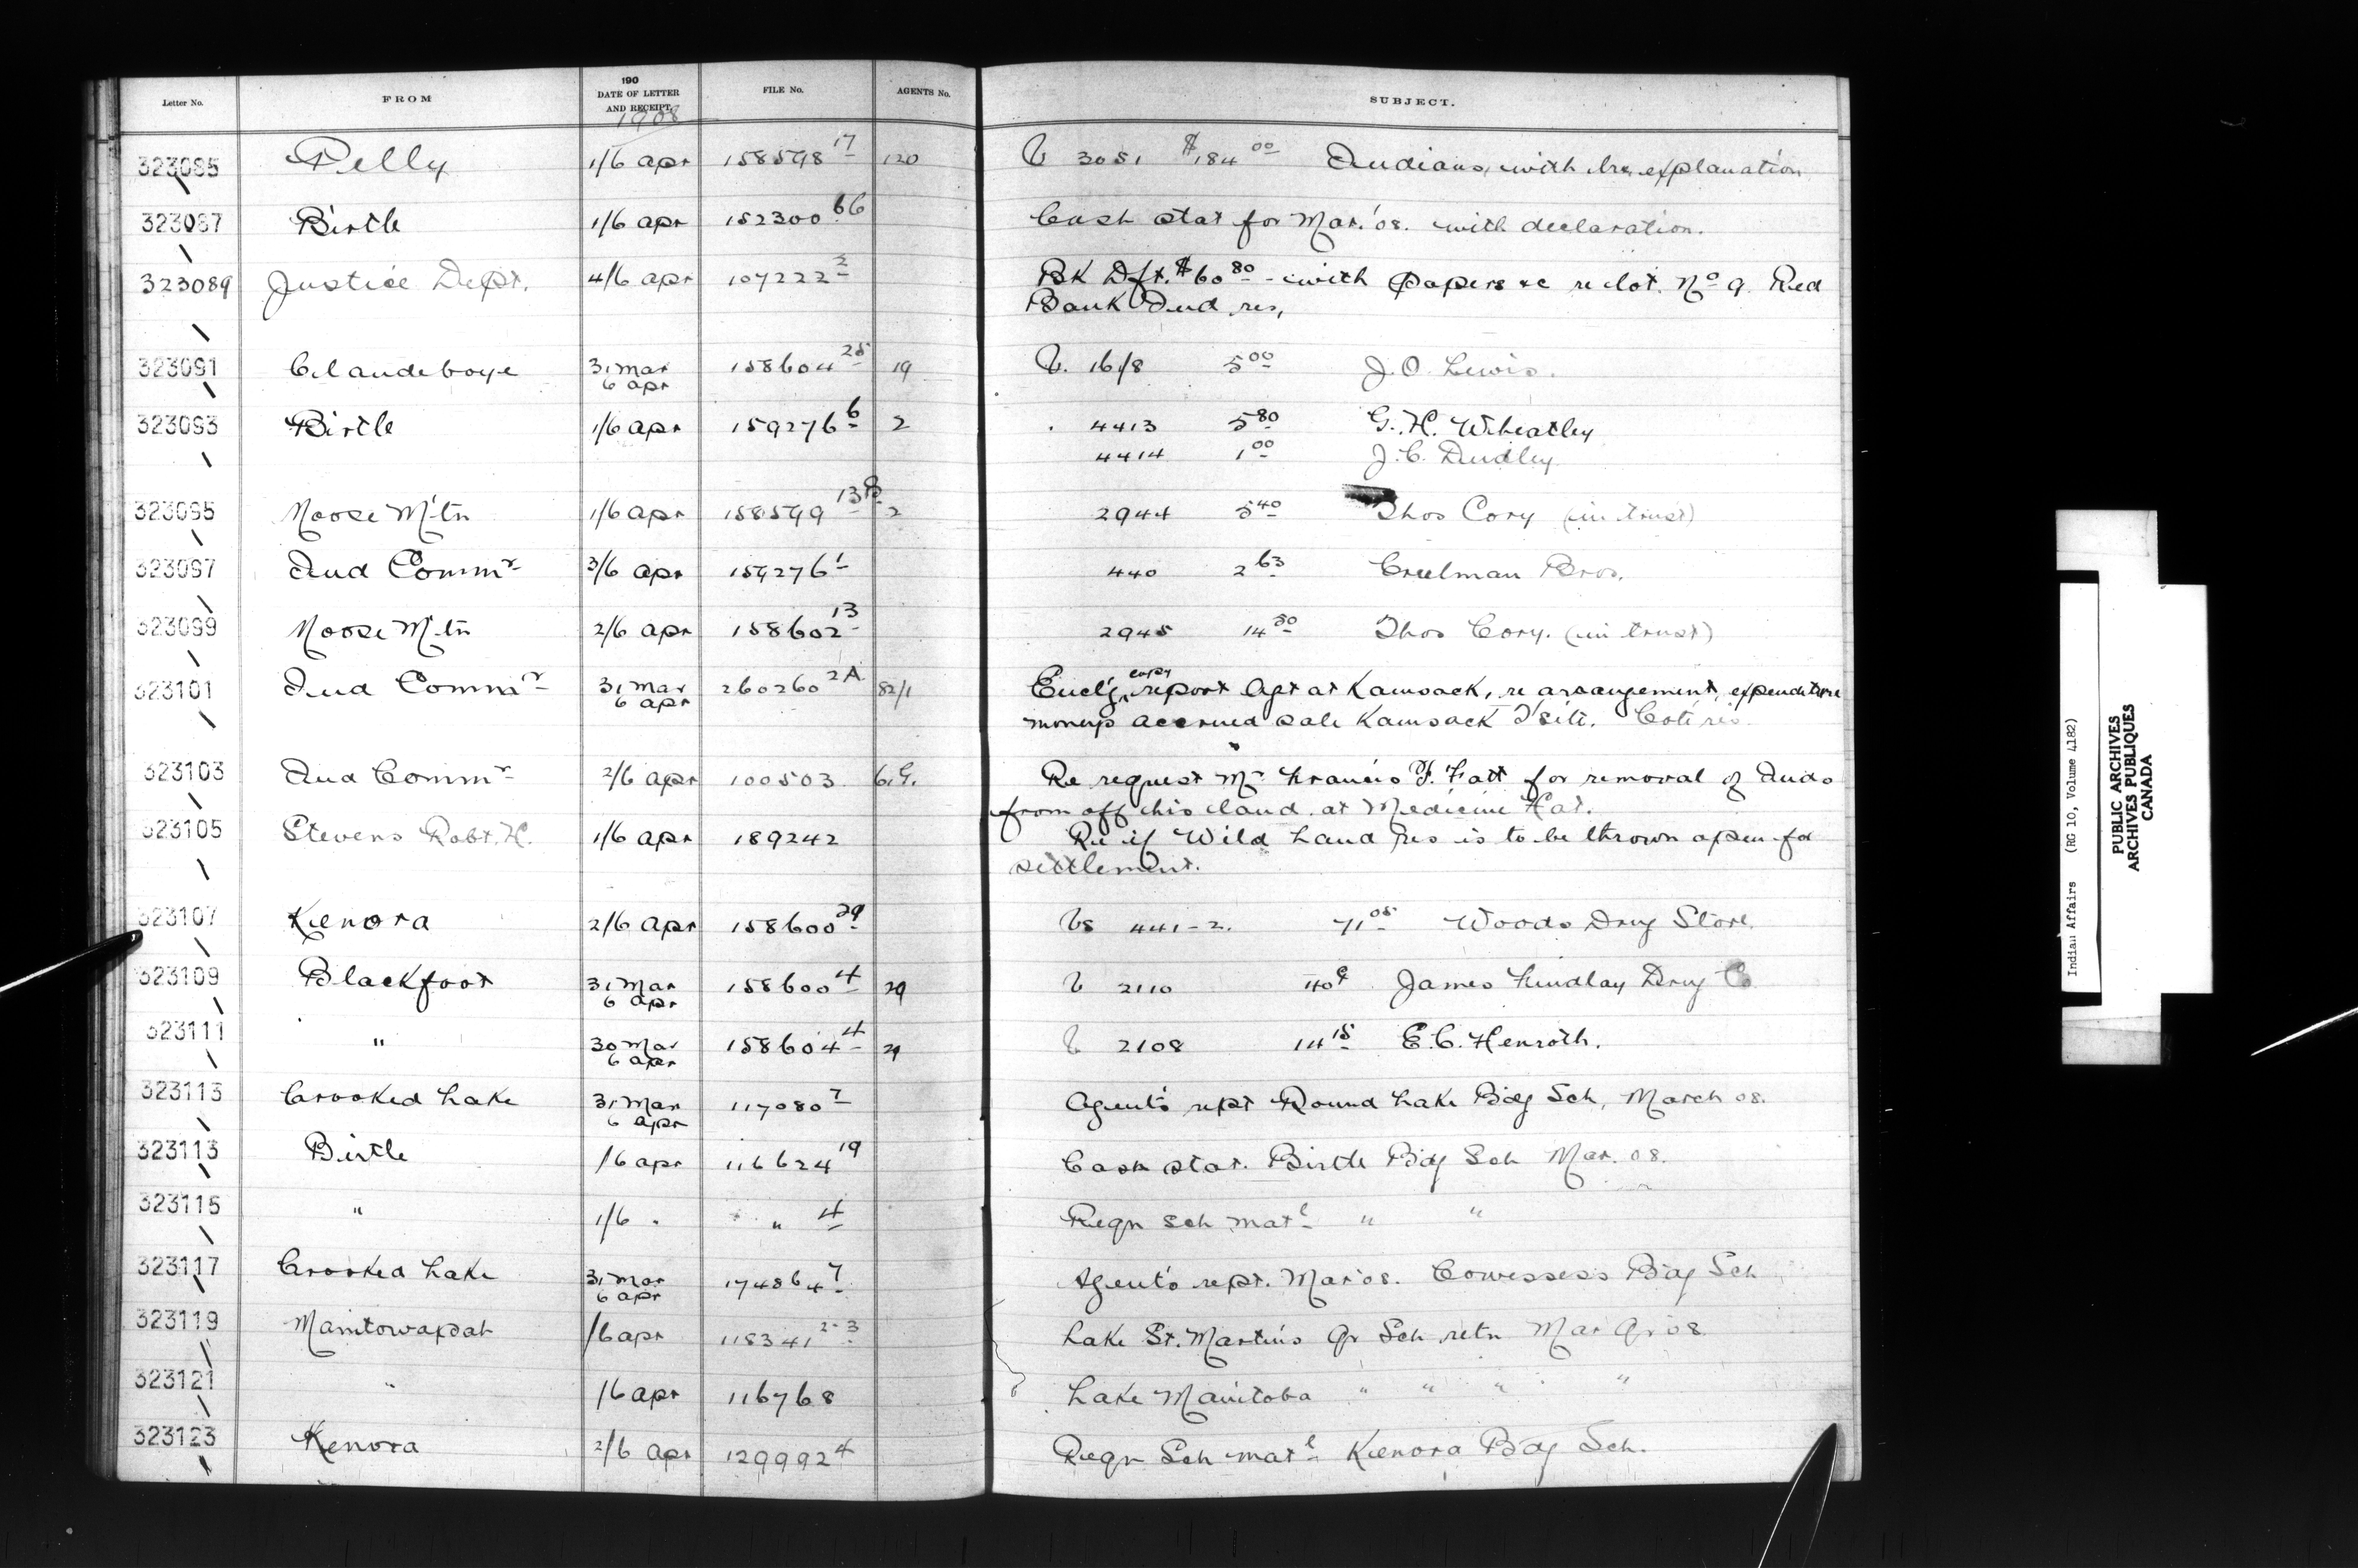 Letter No. FROM 190 DATE OF LETTER AND RECEIPT. FILE No. AGENTS No. SUBJECT.
1908
323085 Pelly 1/6 apr 158598 17 120 V 3051 $184 00 Indians, with explanation
323087 Birtle 1/6 apr 152300 66 Cash stat for Mar. '08. with declaration.
323089 Justice Dept. 4/6 apr 107222 2 Bk Dft. $60 80 - with papers &c re lot. No 9 Red
Bank Ind res,
323091 Clandeboye 31 Mar 6 apr 158604 25 19 V. 1618 5 00 J. O. Lewis.
323093 Birtle 1/6 apr 159276 6 2 4413 5 80 G. H. Wheatley
4414 1 00 J. C. Dudley
323095 Moose M'tn 1/6 apr 158599 13 2 2944 5 40 Thos Cory (in trust)
323097 Ind Commr 3/6 apr 159276 1 440 2 63 Creelman Bros.
323099 Moose M'tn 2/6 apr 158602 13 2945 14 50 Thos Cory. (in trust)
323101 Ind Commr 31 Mar 6 apr 260260 2A 82/1 Encl'g copy report Agt at Kamsack, re arrangement, expenditure
moneys accrued sale Kamsack T'site. Coté res
323103 Ind Commr 2/6 apr 100503 6.G. Re request Mr Francis F. Fatt for removal of Inds
from off his land, at Medicine Hat.
323105 Stevens Robt. H. 1/6 apr 189242 Re if Wild Land res is to be thrown open for
settlement.
323107 Kenora 2/6 apr 158600 29 Vs 441-2. 71 05 Woods Drug Store.
323109 Blackfoot 31 Mar 6 apr 158600 4 29 V 2110 40¢ James Findlay Drug Co
323111 " 30 Mar 6 apr 158604 4 29 V 2108 14 15 E. C. Henroth.
323113 Crooked Lake 31 Mar 6 apr 117080 7 Agent's rept Round Lake Bdg Sch, March 08.
323113 Birtle /6 apr 116624 19 Cash stat. Birtle Bdg Sch Mar. 08.
323115 " 1/6 " " 4 Reqn sch matl " "
323117 Crooked Lake 31 Mar 6 apr 174864 7 Agent's rept. Mar 08. Cowessess Bdg Sch
323119 Manitowapah /6 apr 118341 2-3 Lake St. Martins Qr Sch retn Mar Qr 08.
323121 " /6 apr 116768 Lake Manitoba " " " "
323123 Kenora 2/6 apr 129992 4 Reqn Sch matl Kenora Bdg Sch.
Indian Affairs (RG 10, Volume 4182)
PUBLIC ARCHIVES
ARCHIVES PUBLIQUES
CANADA